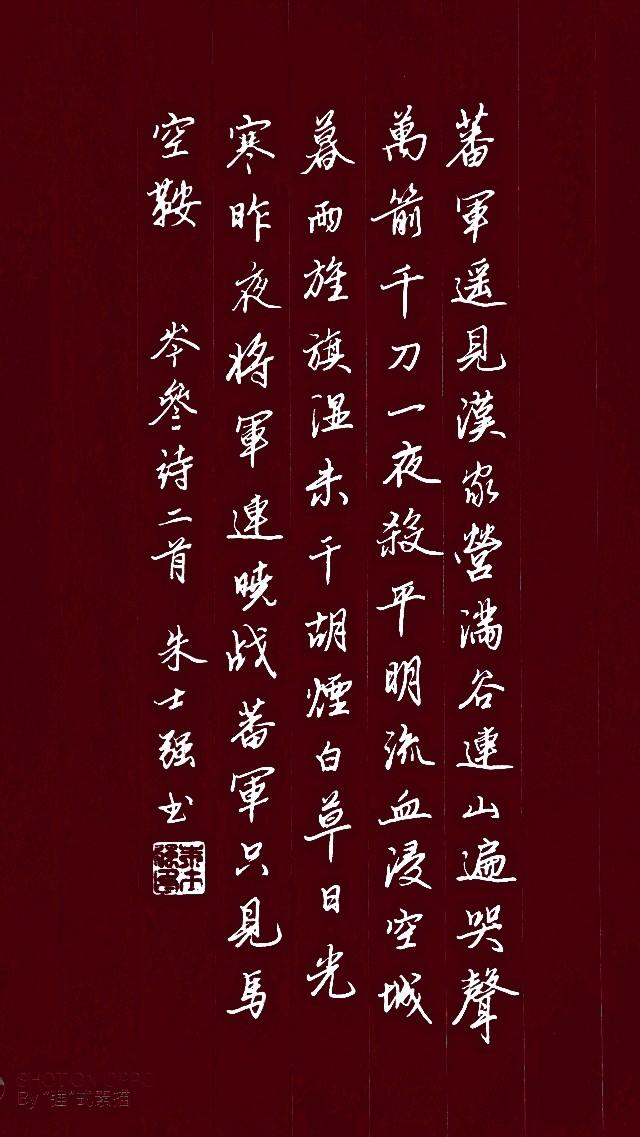 蕃軍遥見漢家營滿谷連山遍哭聲
萬箭千刀一夜殺平明流血浸空城
暮雨旌旗湿未干胡煙白草日光
寒昨夜将軍連曉战蕃軍只見馬
空鞍 岑參诗二首 朱士强书
By "锤"式素描